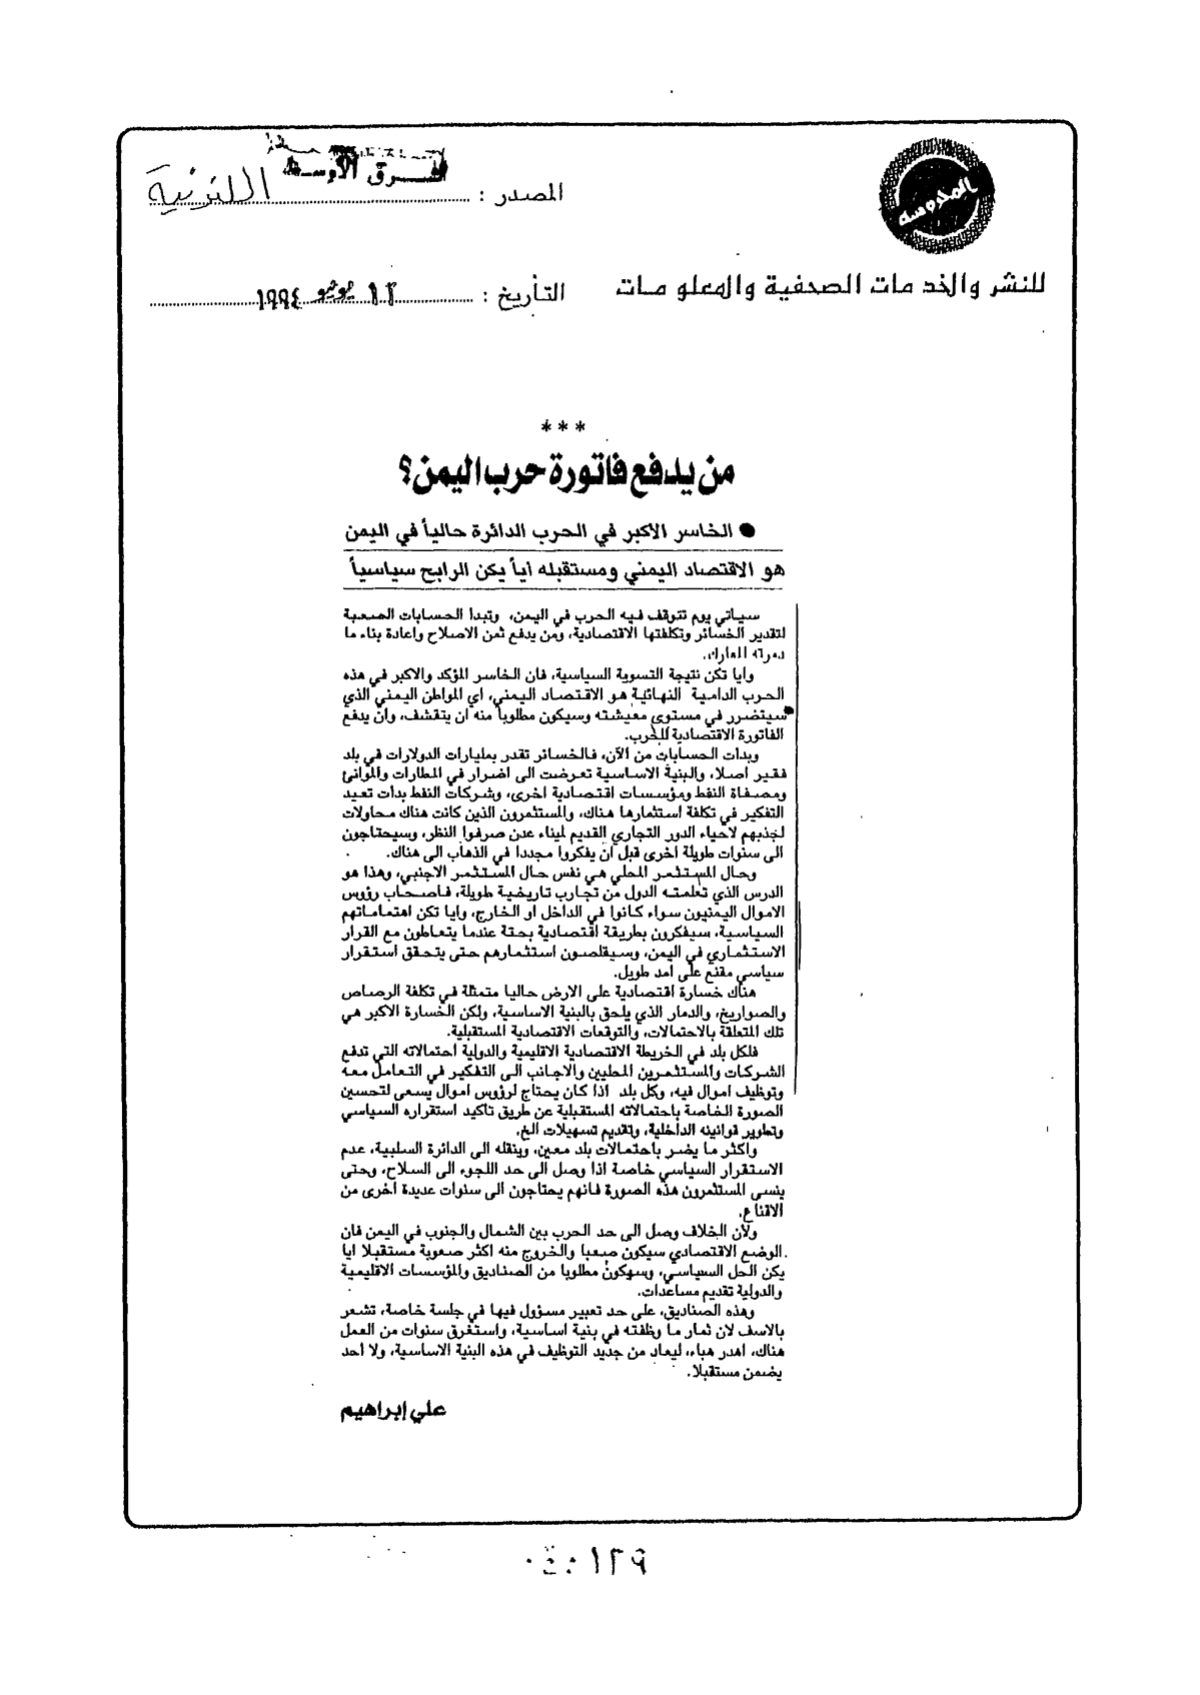 المصدر : الشرق الأوسط اللندنية
المحروسة
للنشر والخدمات الصحفية والمعلومات
التأريخ : ١٢ يونيو ١٩٩٤
***
من يدفع فاتورة حرب اليمن؟
● الخاسر الاكبر في الحرب الدائرة حالياً في اليمن
هو الاقتصاد اليمني ومستقبله اياً يكن الرابح سياسياً
سياتي يوم تتوقف فيه الحرب في اليمن، وتبدا الحسابات الصعبة
لتقدير الخسائر وتكلفتها الاقتصادية، ومن يدفع ثمن الاصلاح واعادة بناء ما
دمرته المعارك.
وايا تكن نتيجة التسوية السياسية، فان الخاسر المؤكد والاكبر في هذه
الحرب الدامية النهائية هو الاقتصاد اليمني، اي المواطن اليمني الذي
سيتضرر في مستوى معيشته وسيكون مطلوباً منه ان يتقشف، وان يدفع
الفاتورة الاقتصادية للحرب.
وبدات الحسابات من الآن، فالخسائر تقدر بمليارات الدولارات في بلد
فقير اصلا، والبنية الاساسية تعرضت الى اضرار في المطارات والموانئ
ومصفاة النفط ومؤسسات اقتصادية اخرى، وشركات النفط بدات تعيد
التفكير في تكلفة استثمارها هناك، والمستثمرون الذين كانت هناك محاولات
لجذبهم لاحياء الدور التجاري القديم لميناء عدن صرفوا النظر، وسيحتاجون
الى سنوات طويلة اخرى قبل ان يفكروا مجددا في الذهاب الى هناك.
وحال المستثمر المحلي هي نفس حال المستثمر الاجنبي، وهذا هو
الدرس الذي تعلمته الدول من تجارب تاريخية طويلة، فاصحاب رؤوس
الاموال اليمنيون سواء كانوا في الداخل او الخارج، وايا تكن اهتماماتهم
السياسية، سيفكرون بطريقة اقتصادية بحتة عندما يتعاطون مع القرار
الاستثماري في اليمن، وسيقلصون استثمارهم حتى يتحقق استقرار
سياسي مقنع على امد طويل.
هناك خسارة اقتصادية على الارض حاليا متمثلة في تكلفة الرصاص
والصواريخ، والدمار الذي يلحق بالبنية الاساسية، ولكن الخسارة الاكبر هي
تلك المتعلقة بالاحتمالات، والتوقعات الاقتصادية المستقبلية.
فلكل بلد في الخريطة الاقتصادية الاقليمية والدولية احتمالاته التي تدفع
الشركات والمستثمرين المحليين والاجانب الى التفكير في التعامل معه
وتوظيف اموال فيه، وكل بلد اذا كان يحتاج لرؤوس اموال يسعى لتحسين
الصورة الخاصة باحتمالاته المستقبلية عن طريق تاكيد استقراره السياسي
وتطوير قوانينه الداخلية، وتقديم تسهيلات الخ.
واكثر ما يضر باحتمالات بلد معين، وينقله الى الدائرة السلبية، عدم
الاستقرار السياسي خاصة اذا وصل الى حد اللجوء الى السلاح، وحتى
ينسى المستثمرون هذه الصورة فانهم يحتاجون الى سنوات عديدة اخرى من
الاقناع.
ولان الخلاف وصل الى حد الحرب بين الشمال والجنوب في اليمن فان
الوضع الاقتصادي سيكون صعبا والخروج منه اكثر صعوبة مستقبلا ايا
يكن الحل السياسي، وسيكون مطلوبا من الصناديق والمؤسسات الاقليمية
والدولية تقديم مساعدات.
وهذه الصناديق، على حد تعبير مسؤول فيها في جلسة خاصة، تشعر
بالاسف لان ثمار ما وظفته في بنية اساسية، واستغرق سنوات من العمل
هناك، اهدر هباء، ليعاد من جديد التوظيف في هذه البنية الاساسية، ولا احد
يضمن مستقبلا.
علي إبراهيم